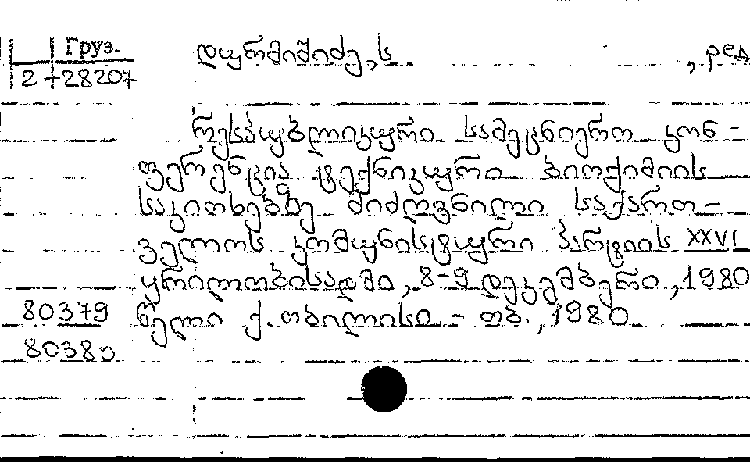 Груз.
2-28207
დურმიშიძე, ს. , ред
რესპუბლიკური სამეცნიერო კონ-
ფერენცია ტექნიკური ბიოქიმიის
საკითხებზე მიძღვნილი საქართ-
ველოს კომუნისტური პარტიის XXVI
ყრილობისადმი, 8-9 დეკემბერი, 1980
80379 წელი ქ. თბილისი - თბ., 1980
80380